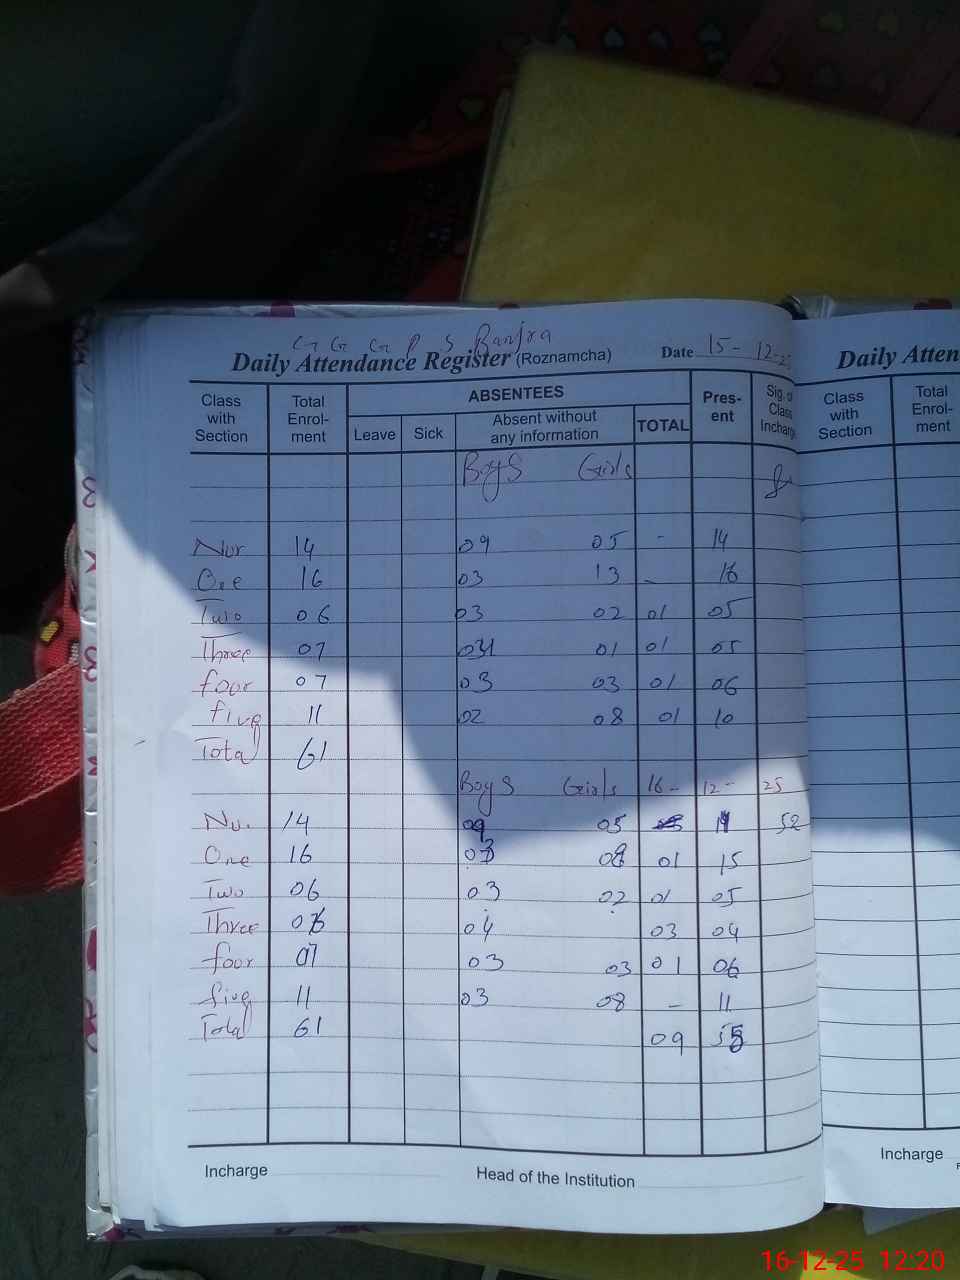 G G G P S Banjra
Daily Attendance Register (Roznamcha) Date 15-12-25
Daily Atten
Class with Section Total Enrol-ment ABSENTEES Pres-ent Sig. of Class Incharg
Leave Sick Absent without any information TOTAL
Class with Section Total Enrol-ment
Boys Girls
Nur 14 09 05 - 14
One 16 03 13 - 16
Two 06 03 02 01 05
Three 07 01 01 05
four 07 03 03 01 06
five 11 02 08 01 10
Total 61
Boys Girls 16-12-25
Nu. 14 09 05 52
One 16 01 15
Two 06 03 02 01 05
Three 04 03 04
four 07 03 03 01 06
five 11 03 08 - 11
Total 61 09
Incharge Head of the Institution
Incharge
16-12-25 12:20